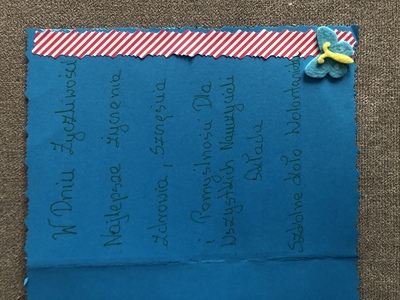 W Dniu Życzliwości
Najlepsze życzenia
zdrowia, szczęścia
i Pomyślności Dla
Wszystkich Nauczycieli
Składa
Szkolne Koło Wolontariatu